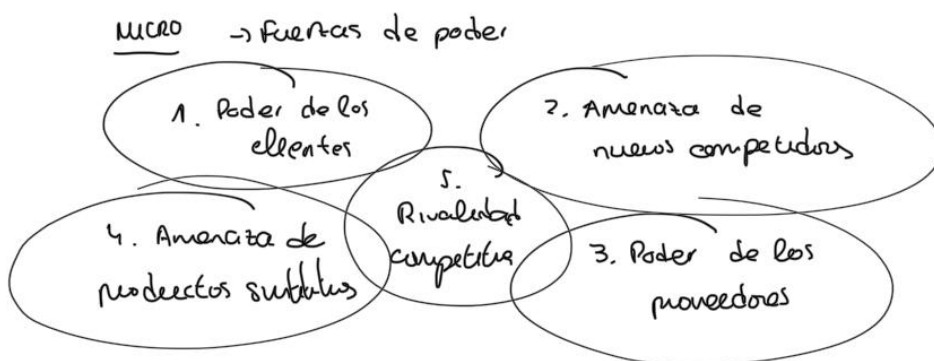 MICRO → Fuerzas de poder
1. Poder de los
clientes
2. Amenaza de
nuevos competidores
5.
Rivalidad
competitiva
4. Amenaza de
productos sustitutos
3. Poder de los
proveedores